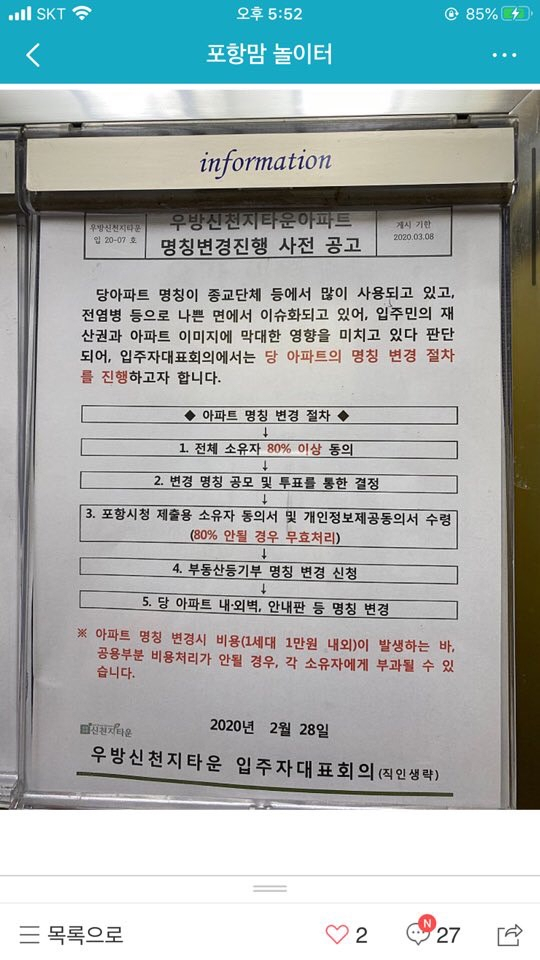 SKT 오후 5:52 85%
포항맘 놀이터
information
우방신천지타운
입 20-07 호
우방신천지타운아파트
명칭변경진행 사전 공고
게시 기한
2020.03.08
당아파트 명칭이 종교단체 등에서 많이 사용되고 있고,
전염병 등으로 나쁜 면에서 이슈화되고 있어, 입주민의 재
산권과 아파트 이미지에 막대한 영향을 미치고 있다 판단
되어, 입주자대표회의에서는 당 아파트의 명칭 변경 절차
를 진행하고자 합니다.
◆ 아파트 명칭 변경 절차 ◆
↓
1. 전체 소유자 80% 이상 동의
↓
2. 변경 명칭 공모 및 투표를 통한 결정
↓
3. 포항시청 제출용 소유자 동의서 및 개인정보제공동의서 수령
(80% 안될 경우 무효처리)
↓
4. 부동산등기부 명칭 변경 신청
↓
5. 당 아파트 내·외벽, 안내판 등 명칭 변경
※ 아파트 명칭 변경시 비용(1세대 1만원 내외)이 발생하는 바,
공용부분 비용처리가 안될 경우, 각 소유자에게 부과될 수 있
습니다.
2020년 2월 28일
신천지타운
우방신천지타운 입주자대표회의(직인생략)
목록으로 2 N 27